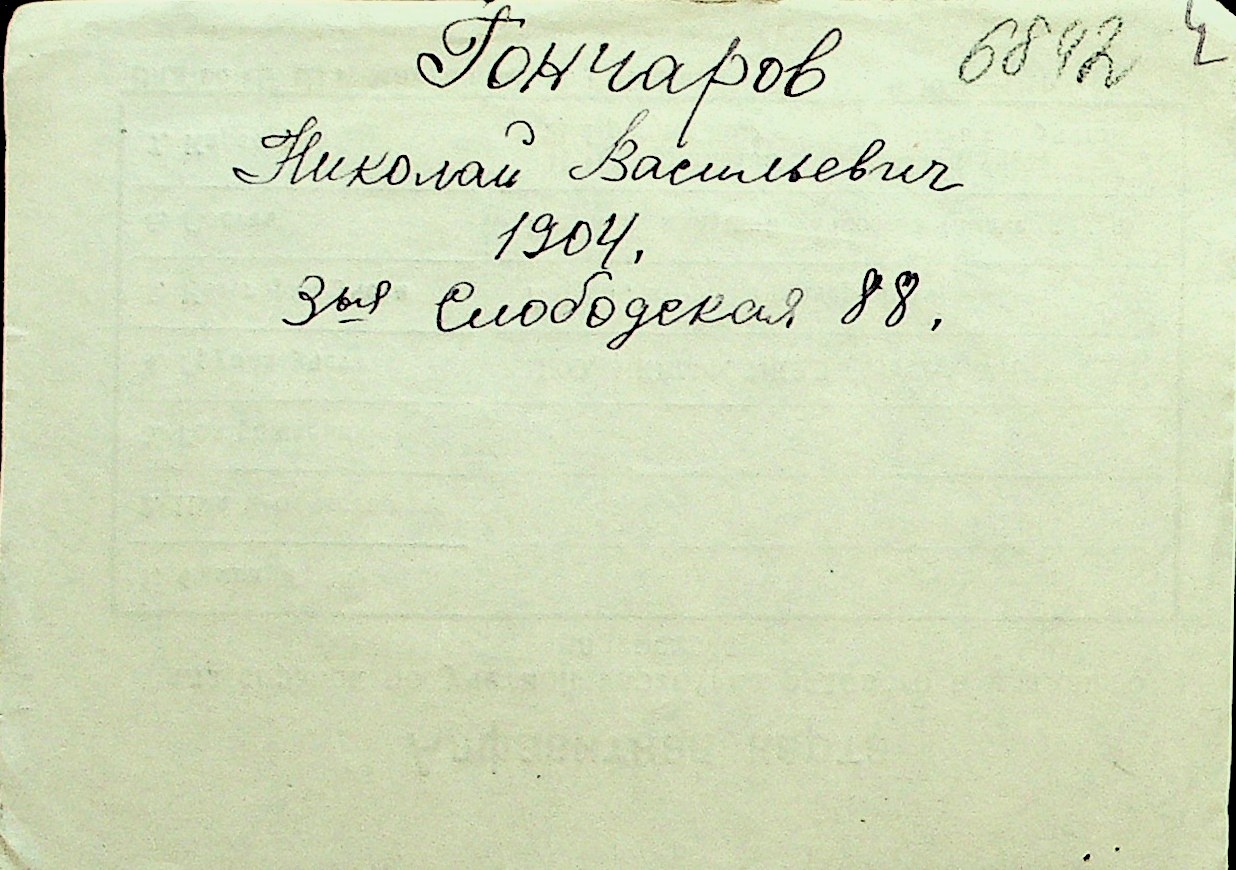 Гончаров 6892
Николай Васильевич
1904.
3ья Слободская 88.